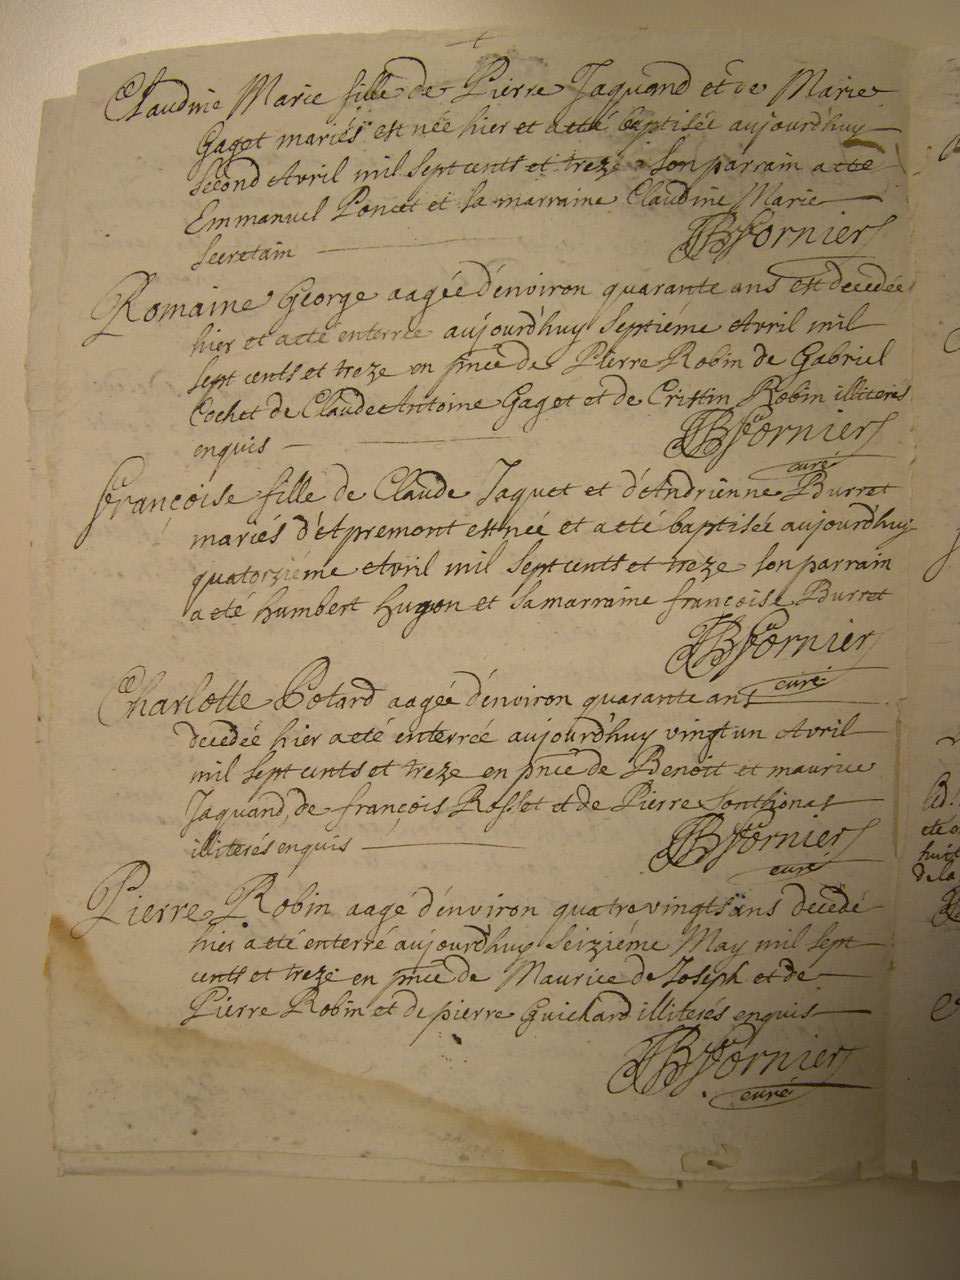 Claudine Marie fille de Pierre Jaquand et de Marie
Gaget mariés est née hier et a eté baptisée aujourdhuy
second Avril mil sept cents et treze son parrain a ete
Emmanuel Poncet et sa marraine Claudine Marie
secretain
Fornier
Romaine George aagée d'environ quarante ans est decedée
hier et a eté enterrée aujourd'huy septiéme Avril mil
sept cents et treze en pnce de Pierre Robin de Gabriel
Cochet de Claude Antoine Gaget et de Cristin Robin illiterés
enquis
Fornier
curé
françoise fille de Claude Jaquet et d'Andrienne Burret
mariés d'Apremont est née et a eté baptisée aujourd'huy
quatorziéme Avril mil sept cents et treze son parrain
a eté humbert hugon et sa marraine françoise Burret
Fornier
curé
Charlotte Potard aagée d'environ quarante ans
decedée hier a eté enterrée aujourd'huy vingt un Avril
mil sept cents et treze en pnce de Benoit et maurice
Jaquand, de françois Rosset et de Pierre Sonthonas
illiterés enquis
Fornier
curé
Pierre Robin aagé d'environ quatre vingts ans decedé
hier a eté enterré aujourd'huy seiziéme May mil sept
cents et treze en pnce de Maurice de Joseph et de
Pierre Robin et de pierre Guichard illiterés enquis
Fornier
curé